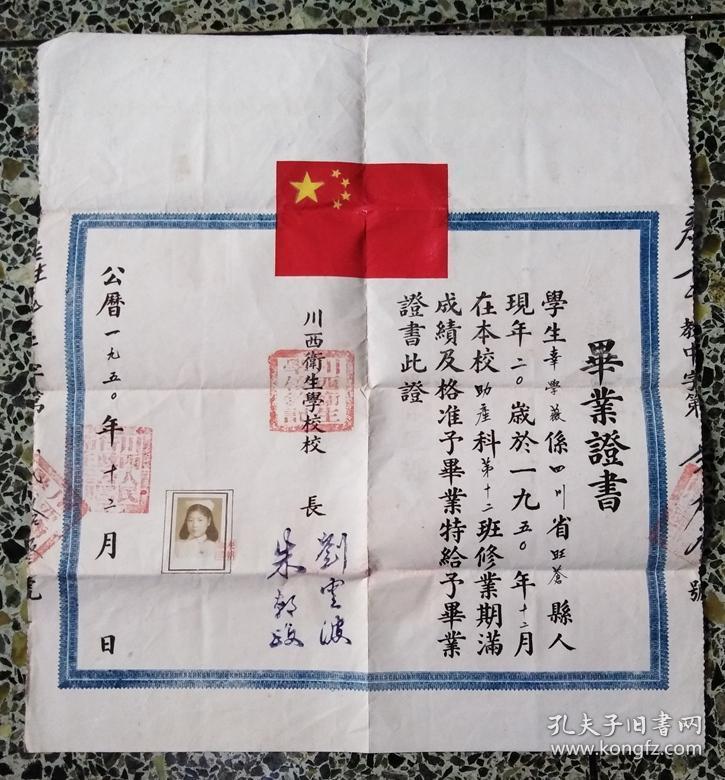 畢業證書
學生幸學薇係四川省旺蒼縣人
現年二〇歲於一九五〇年十二月
在本校助產科第十二班修業期滿
成績及格准予畢業特給予畢業
證書此證
川西衛生學校校長
劉雲波
朱
公曆一九五〇年十二月 日
教中字第 號
孔夫子旧书网
www.kongfz.com